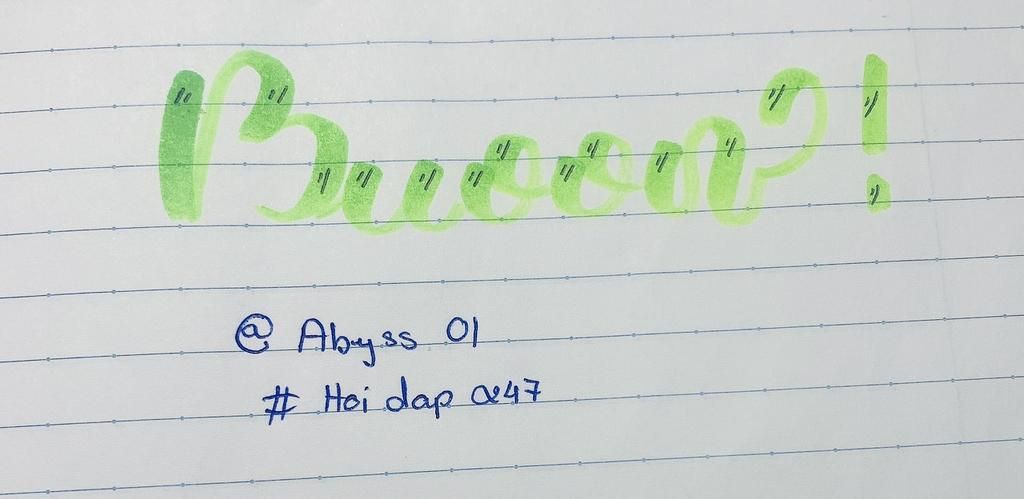 Buoon?!
@ Abyss 01
# Hoi dap 247